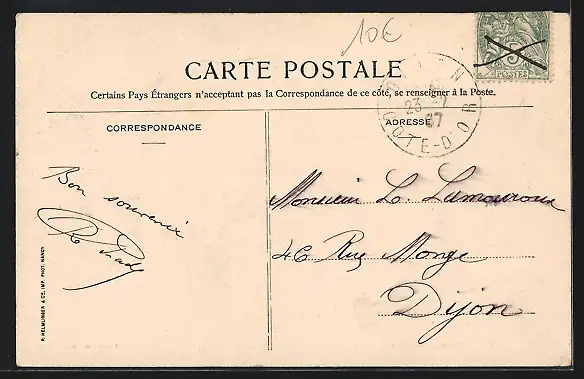 10€
CARTE POSTALE
Certains Pays Étrangers n'acceptant pas la Correspondance de ce côté, se renseigner à la Poste.
CORRESPONDANCE
ADRESSE
5
POSTES
DIJON
23
07
COTE-D'OR
Bon souvenir
Monsieur L. Lamouroux
46 Rue Monge
Dijon
P. HELMLINGER & Cie, IMP. PHOT. NANCY